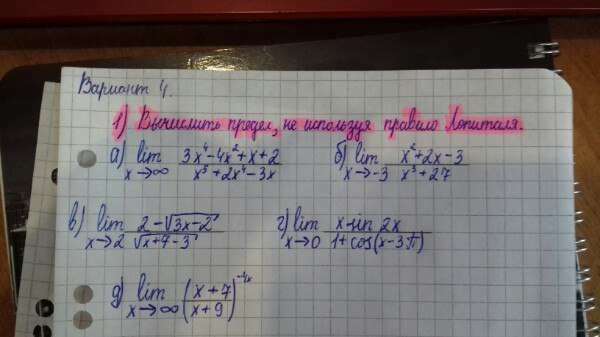 Вариант 4.
1) Вычислить предел, не используя правило Лопиталя.
а) lim x→∞ (3x⁴-4x²+x+2)/(x⁵+2x⁴-3x) б) lim x→-3 (x²+2x-3)/(x³+27)
в) lim x→2 (2-√(3x-2))/(√(x+7-3)) г) lim x→0 (x·sin 2x)/(1+cos(x-3π))
д) lim x→∞ ((x+7)/(x+9))^(-4x)